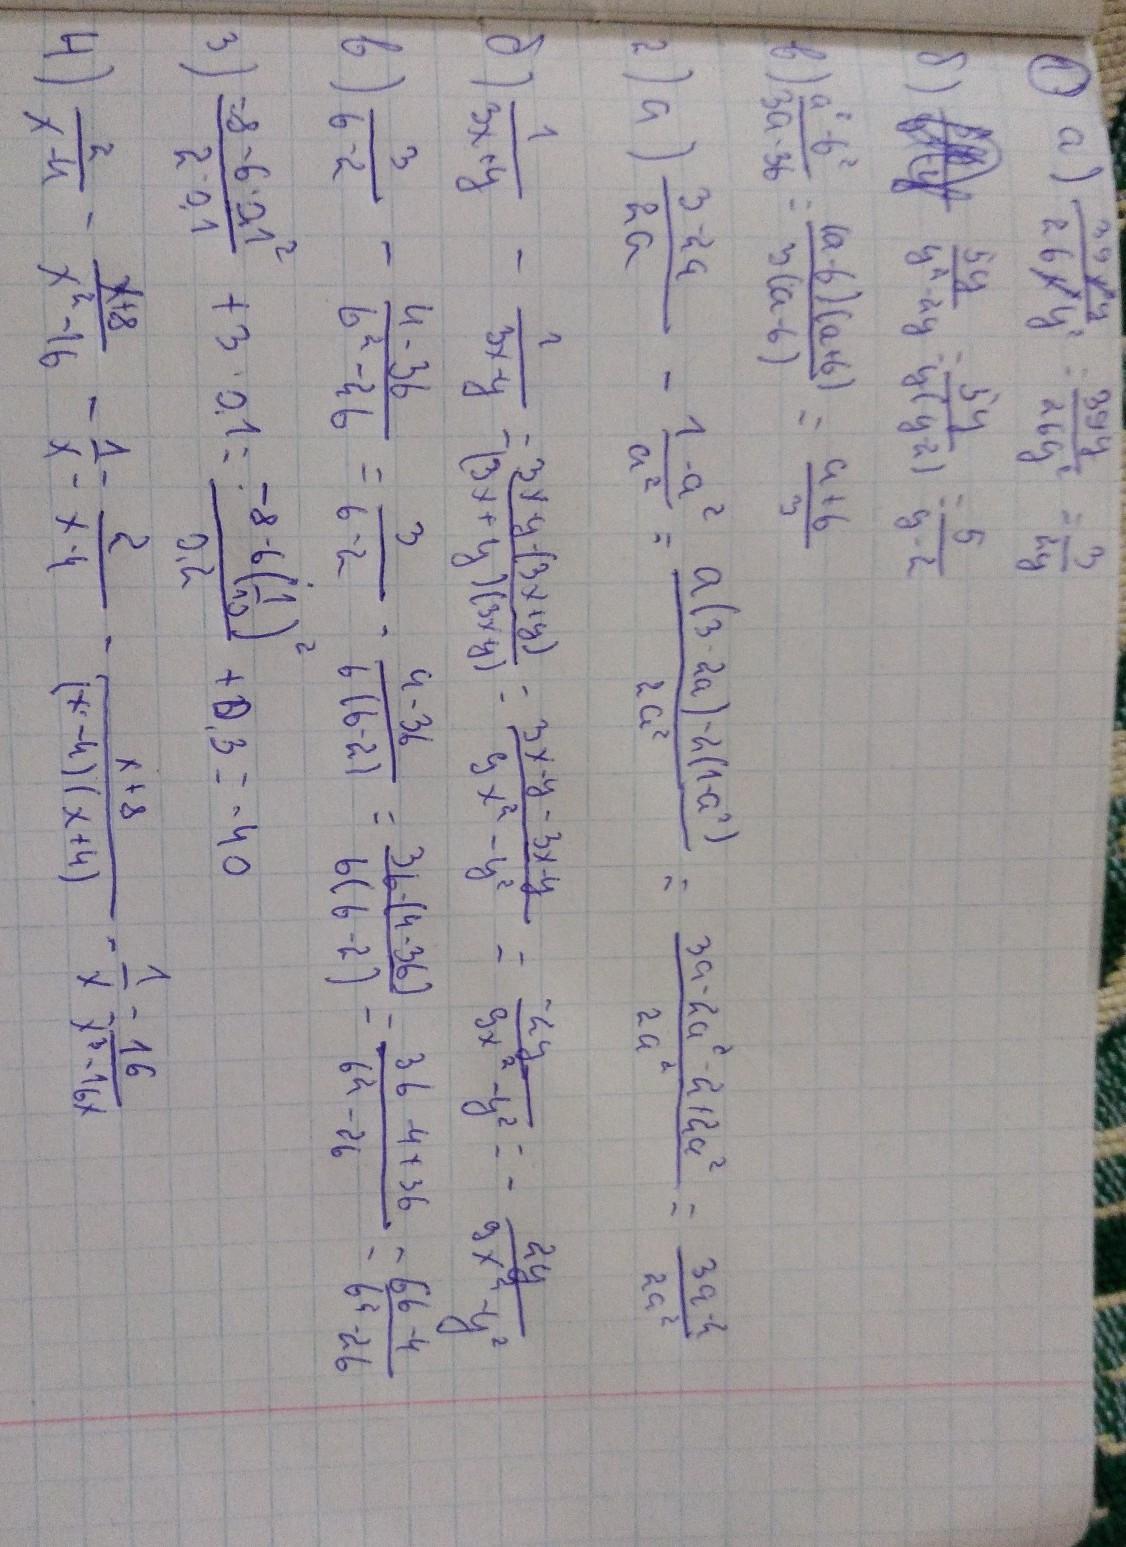 ① а) 39x³y / 26x²y² = 39y / 26y² = 3 / 2y
б) 5y / y²-2y = 5y / y(y-2) = 5 / y-2
в) a²-b² / 3a-3b = (a-b)(a+b) / 3(a-b) = a+b / 3
2) а) 3-2a / 2a - 1-a² / a² = a(3-2a)-2(1-a²) / 2a² = 3a-2a²-2+2a² / 2a² = 3a-2 / 2a²
б) 1 / 3x+y - 1 / 3x-y = 3x-y-(3x+y) / (3x+y)(3x-y) = 3x-y-3x-y / 9x²-y² = -2y / 9x²-y² = - 2y / 9x²-y²
в) 3 / b-2 - 4-3b / b²-2b = 3 / b-2 - 4-3b / b(b-2) = 3b-(4-3b) / b(b-2) = 3b-4+3b / b²-2b = 6b-4 / b²-2b
3) =-8-6·0,1² / 2·0,1 + 3·0,1 = -8-6(1/10)² / 0,2 + 0,3 = -40
4) 2 / x-4 - x+8 / x²-16 - 1 / x = 2 / x-4 - x+8 / (x-4)(x+4) - 1 / x = 16 / x³-16x